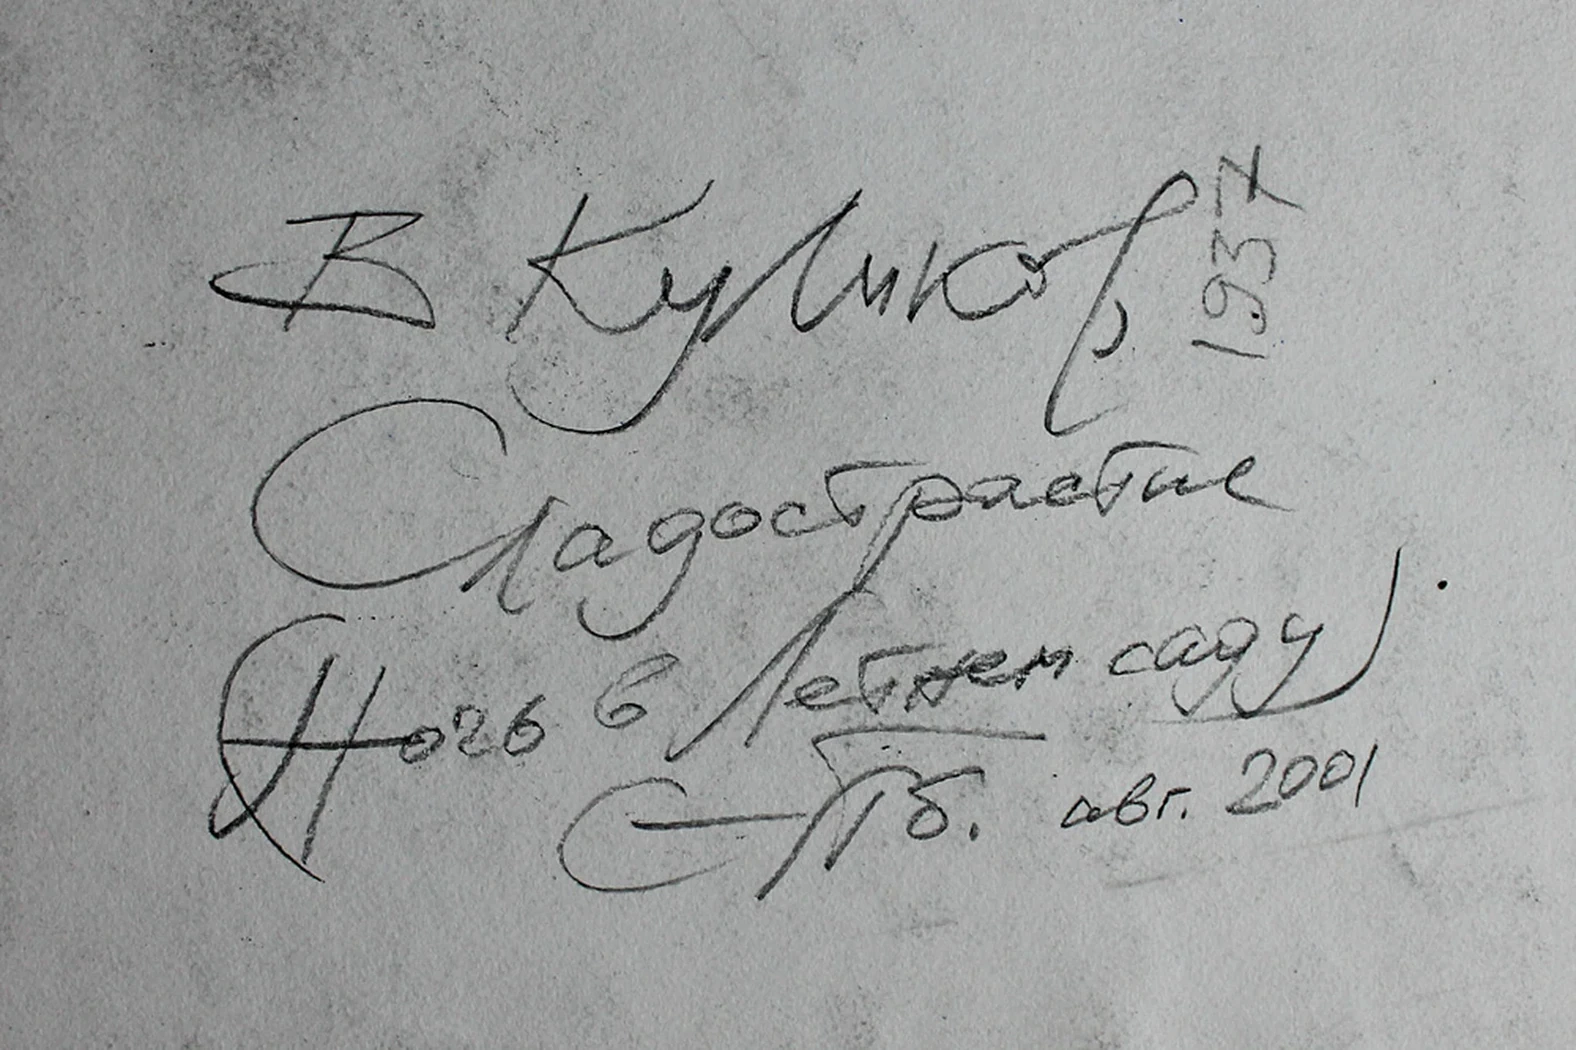 В Куликов 1937
Сладострастие
(Ночь в Летнем саду).
С-Пб. авг. 2001